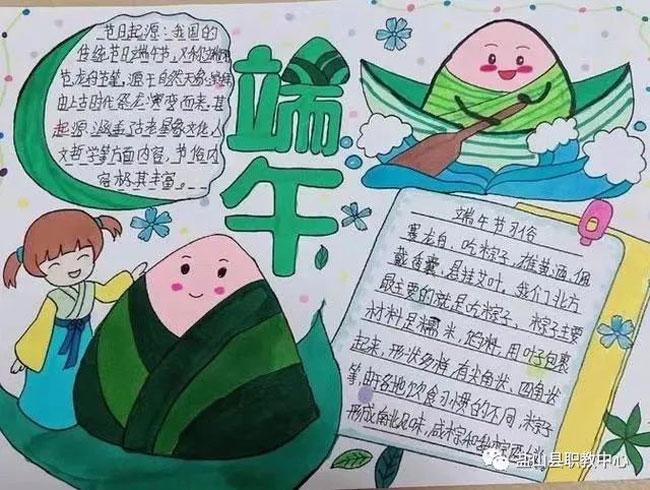 节日起源：我国的
传统节日端午节，又称端阳
节、龙舟节等，源于自然天象崇拜
由上古时代祭龙演变而来，其
起源涵盖了古老星象文化、人
文哲学等方面内容，节俗内
容极其丰富。
端午
端午节习俗
赛龙舟、吃粽子、雄黄酒、佩
戴香囊、悬挂艾叶。我们北方
最主要的就是吃粽子。粽子主要
材料是糯米、馅料，用叶子包裹
起来，形状多样，有尖角状、四角状
等，由于各地饮食习惯的不同，粽子
形成南北风味，咸粽和
盐山县职教中心